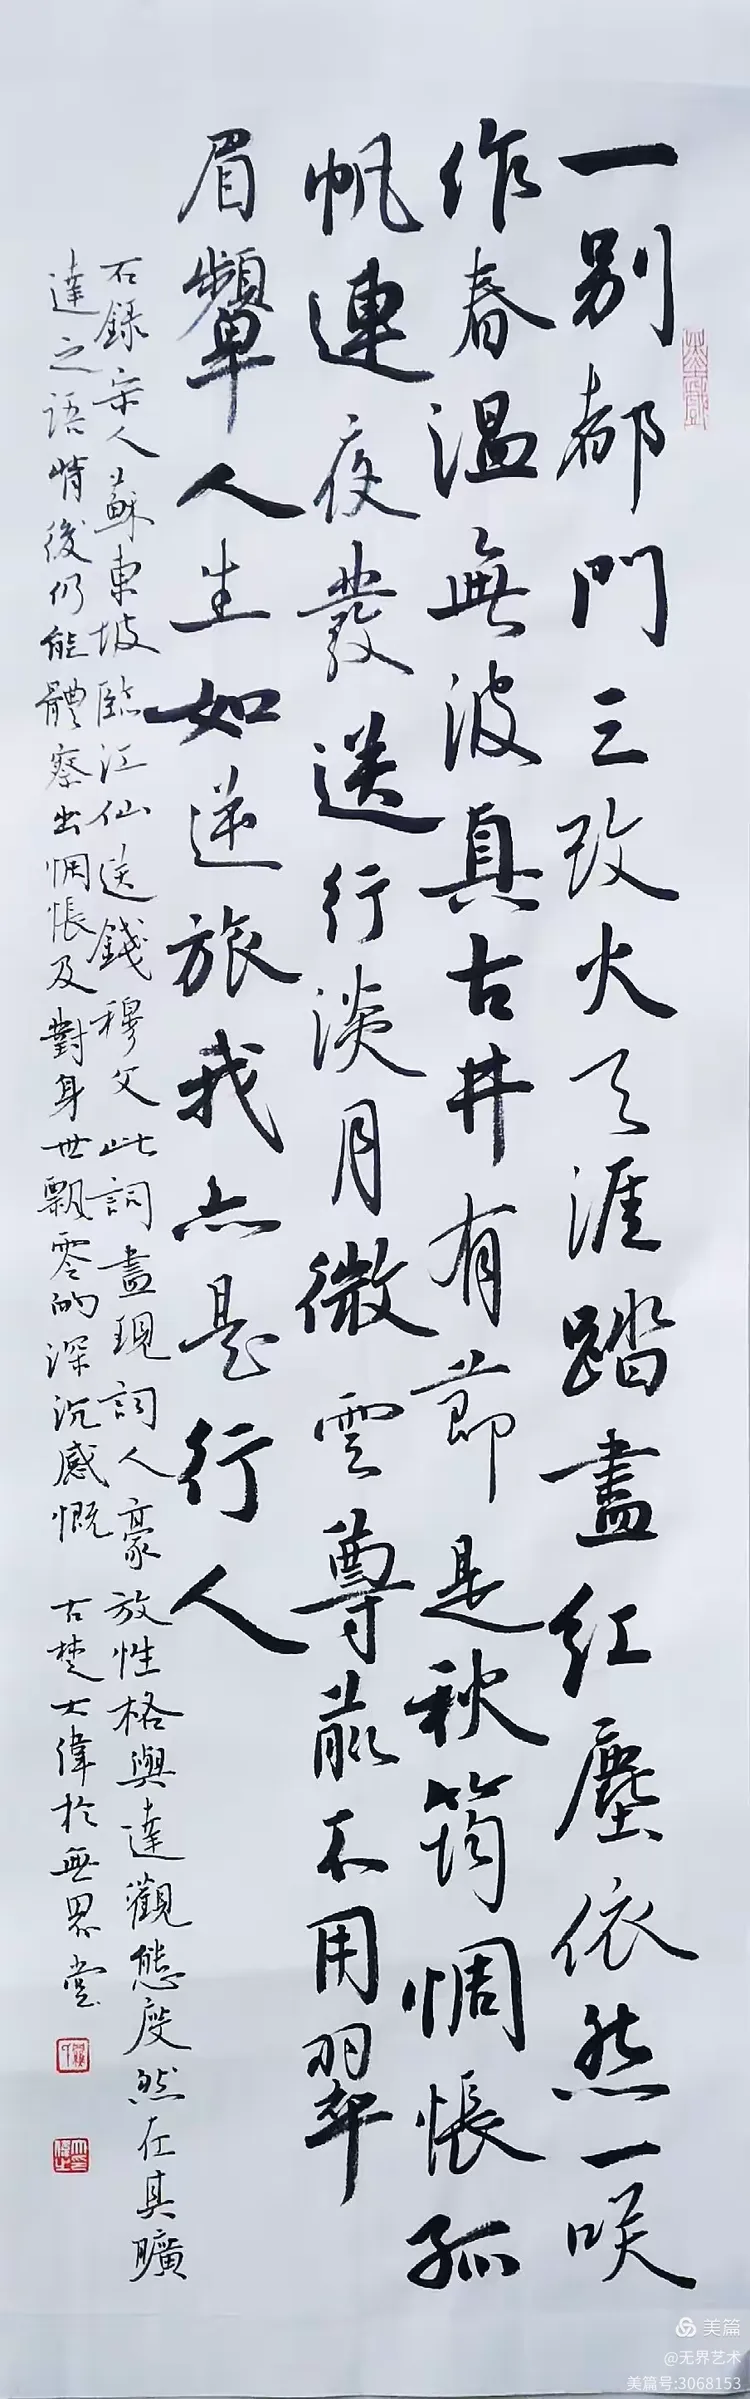 一别都門三改火天涯踏盡紅塵依然一咲
作春温無波真古井有莭是秋筠惆悵孤
帆連夜發送行淡月微雲尊前不用翠
眉顰人生如逆旅我亦是行人
右録宋人蘇東坡臨江仙送錢穆父此詞盡現詞人豪放性格與達觀態度然在其曠
達之語情後仍能體察出惆悵及對身世飄零的深沉感慨 古楚大偉於無界堂
美篇
@无界艺术
美篇号:3068153